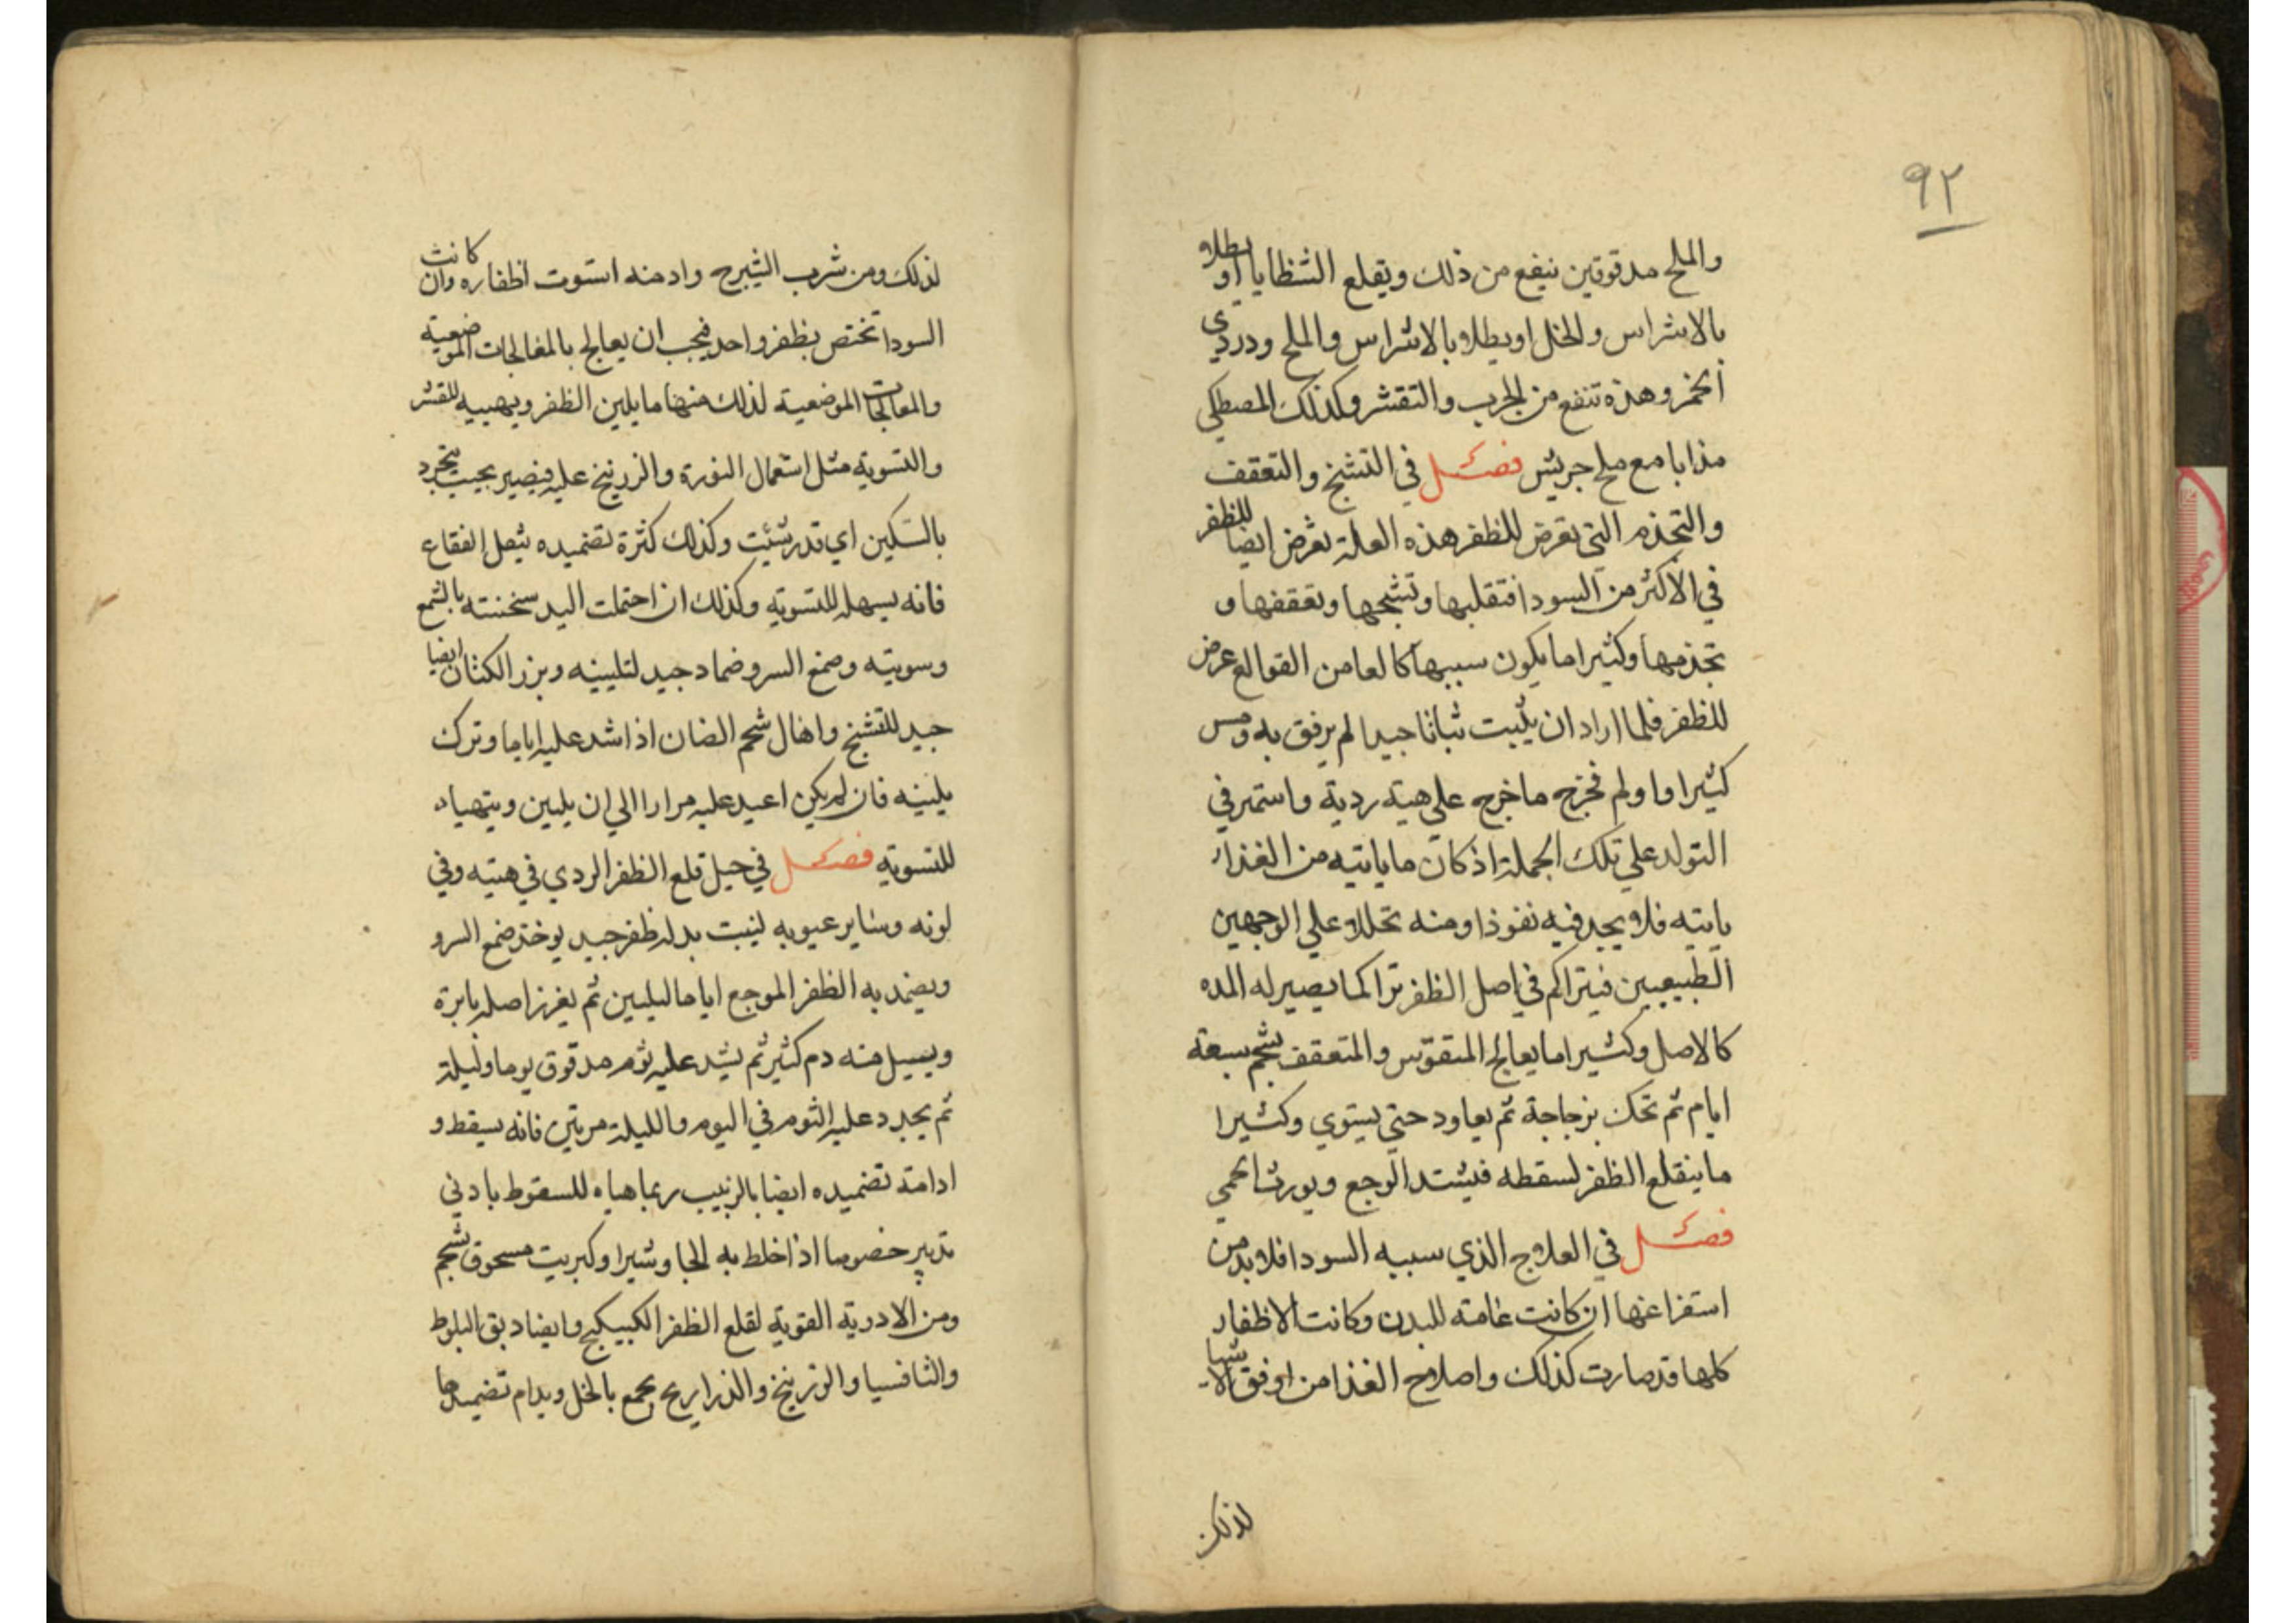 ٩٢
والملح مدقوقين ينفع من ذلك ويقلع الشظايا او يطلا
بالاشراس والخل او يطلا بالاشراس والملح ودردي
الخمر وهذه تنفع من الجرب والتقشر وكذلك المصطكي
مذابا مع ملح جريش فصل في التشنج والتعقف
والتجذم التي تعرض للظفر هذه العلة تعرض ايضا للظفر
في الاكثر من السودا فتقلبها وتشنجها وتعقفها و
تجذمها وكثيرا ما يكون سببها كالعا من القوالع عرض
للظفر فلما اراد ان يثبت ثباتا جيدا لم يرفق به ومس
كثيرا واولم فخرج ما خرج علي هيته ردية واستمر في
التولد علي تلك الجملة اذ كان ما ياتيه من الغذا
ياتيه فلا يجد فيه نفوذا ومنه تحللا علي الوجهين
الطبيعيين فيتراكم في اصل الظفر تراكما يصير له المده
كالاصل وكثيرا ما يعالج المتقوس والمتعقف بشحم سبعة
ايام ثم تحك بزجاجة ثم يعاود حتي يستوي وكثيرا
ما ينقلع الظفر لسقطه فيشتد الوجع ويورث الحمي
فصل في العلاج الذي سببه السودا فلا بد من
استفراغها ان كانت عامته للبدن وكانت الاظفار
كلها قد صارت كذلك واصلاح الغذا من اوفق الاشيا
لذلك
لذلك ومن شرب الشيرج وادمنه استوت اظفاره وان كانت
السودا تختص بظفر واحد فيجب ان يعالج بالمعالجات الموضعية
والمعالجات الموضعية لذلك منها ما يلين الظفر ويهييه للقشر
والتسوية مثل استعمال النورة والزرنيخ عليه فيصير بحيث ينجرد
بالسكين اي قدر شئت وكذلك كثرة تضميده بثفل الفقاع
فانه يسهله للتسوية وكذلك ان احتملت اليد سخنته بالشمع
وسويته وصمغ السرو ضماد جيد لتليينه وبزر الكتان ايضا
جيد للتشنج واهال شحم الضان اذا شد عليه اياما وترك
يلينه فان لم يكن اعيد عليه مرارا الي ان يلين ويتهيا
للتسوية فصل في حيل قلع الظفر الردي في هيته وفي
لونه وساير عيوبه لينبت بدله ظفر جيد يوخذ صمغ السرو
ويضمد به الظفر الموجع اياما ليلين ثم يغرز اصله بابرة
ويسيل منه دم كثير ثم يشد عليه ثوم مدقوق يوما وليلة
ثم يجدد عليه الثوم في اليوم والليلة مرتين فانه يسقط و
ادامة تضميده ايضا بالزبيب ربما هياه للسقوط بادني
تدبير خصوصا اذا خلط به الجاوشيرا وكبريت مسحوق بشحم
ومن الادوية القوية لقلع الظفر الكبيكج وايضا دبق البلوط
والثافسيا والزرنيخ والذراريح يجمع بالخل ويدام تضميدها